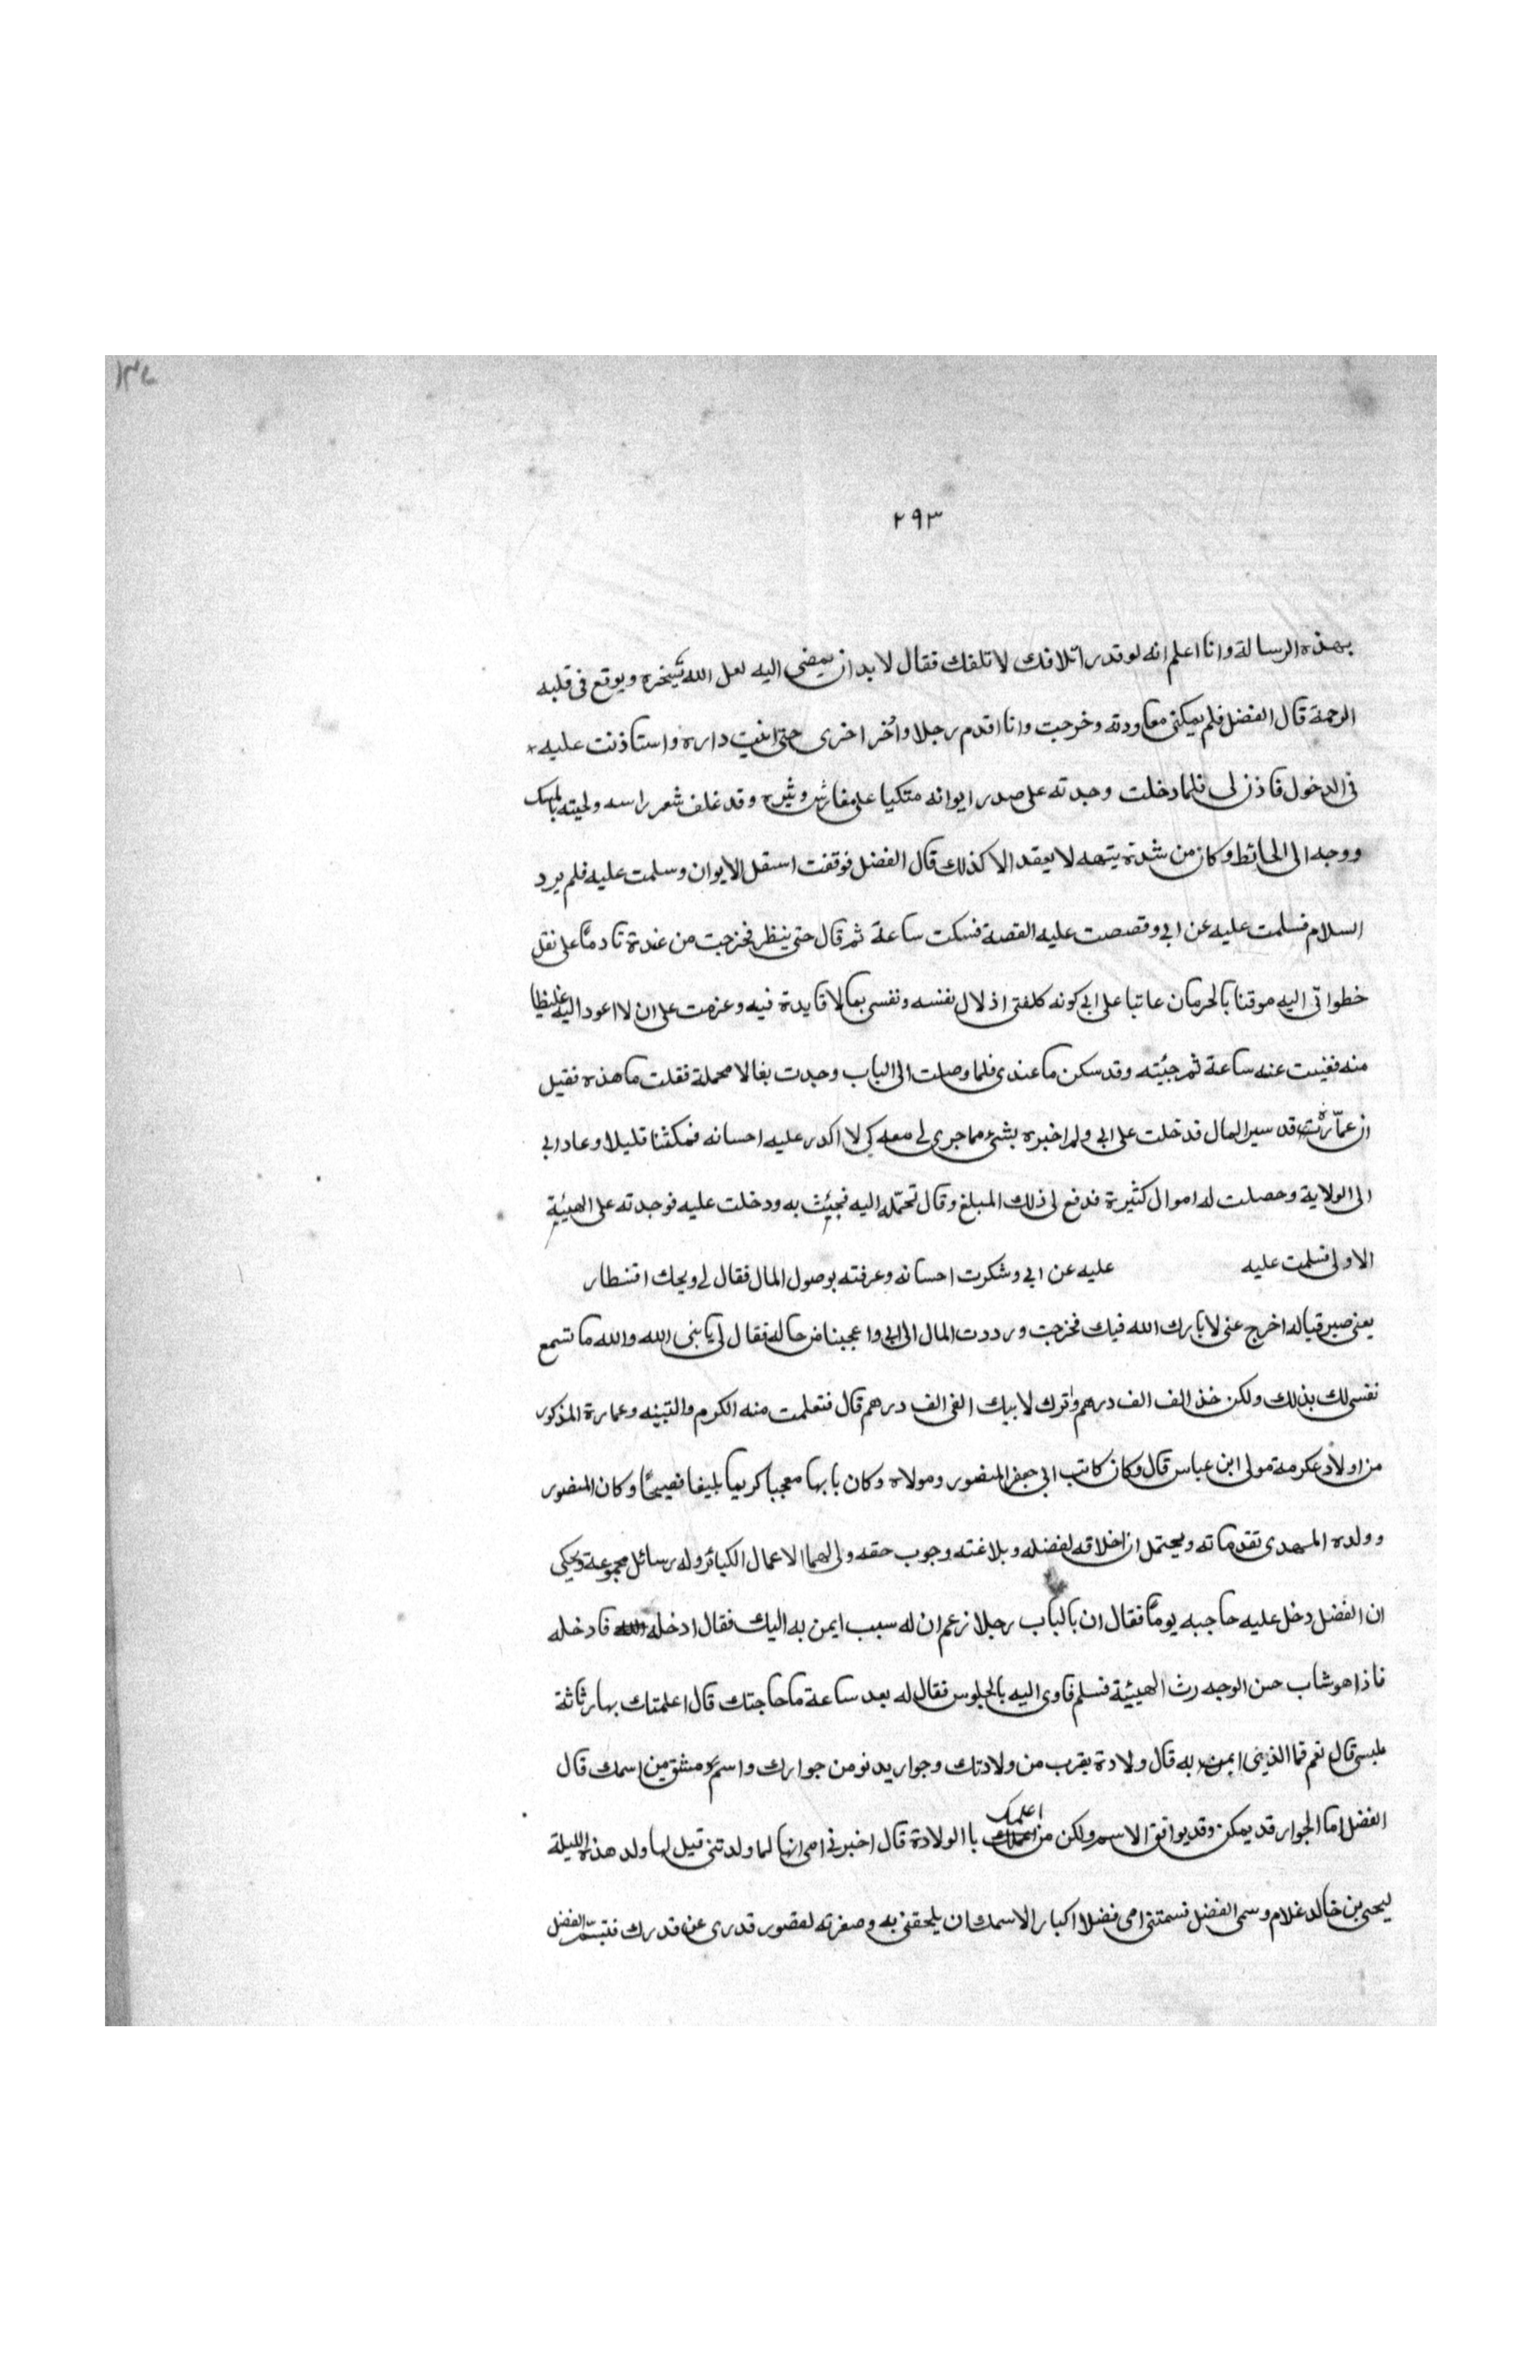 ٢٩٣
بهذه الرسالة وانا اعلم انه لو قدر اتلافك لا تلفك فقال لا بد ان يمضى اليه لعل الله يسخره ويوقع فى قلبه
الرحمة قال الفضل فلم يمكنى معاودته وخرجت وانا اقدم رجلا وأخر اخرى حتى اتيت داره واستاذنت عليه
فى الدخول فاذن لى فلما دخلت وجدته على صدر ايوانه متكيا على مفارش وثيرة وقد غلف شعر راسه ولحيته بالمسك
ووجه الى الحائط وكان من شدة تيهه لا يقعد الا كذلك قال الفضل فوقفت اسفل الايوان وسلمت عليه فلم يرد
السلام فسلمت عليه عن ابى وقصصت عليه القصة فسكت ساعة ثم قال حتى ينظر فخرجت من عنده نادمًا على نقل
خطواتى اليه موقنا بالحرمان عاتبا على ابى كونه كلفنى اذلال نفسه ونفسى بما لا فايدة فيه وعزمت على ان لا اعود اليه غيظا
منه فغبت عنه ساعة ثم جئته وقد سكن ما عندى فلما وصلت الى الباب وجدت بغالا محملة فقلت ما هذه فقيل
ان عمارة قد سير المال فدخلت على ابى ولم اخبره بشئ مما جرى لى معه كى لا اكدر عليه احسانه فمكثنا قليلا وعاد ابى
الى الولاية وحصلت له اموال كثيرة فدفع لى ذلك المبلغ وقال تحمّله اليه فجيئت به ودخلت عليه فوجدته على الهيئية
الاولى فسلمت عليه عليه عن ابى وشكرت احسانه وعرفته بوصول المال فقال لى ويحك اقسطار
يعنى صيرفيا له اخرج عنى لا بارك الله فيك فخرجت ورددت المال الى ابى واعجبنا من حاله فقال لى يا بنى الله والله ما تسمع
نفسى لك بذلك ولكن خذ الف الف درهم واترك لابيك الفى الف درهم قال فتعلمت منه الكرم والتيه وعمارة المذكور
من اولاد عكرمة مولى ابن عباس قال وكان كاتب ابى جعفر المنصور ومولاه وكان تايها معجبا كريما بليغا فصيحًا وكان المنصور
وولده المهدى تقدماته ويحتمل ان اخلاقه لفضله وبلاغته وجوب حقه ولى لهما الاعمال الكبائر وله رسائل مجموعة ويحكى
ان الفضل دخل عليه حاجبه يومًا فقال ان بالباب رجلا زعم ان له سبب ايمن به اليك فقال ادخله فادخله
فاذا هو شاب حسن الوجه رث الهيئية فسلم فاوى اليه بالجلوس فقال له بعد ساعة ما حاجتك قال اعلمتك بها رثاثة
ملبسى قال نعم فما الذى ايمن به قال ولادة يقرب من ولادتك وجوار يدنو من جوارك واسم مشتق من اسمك قال
الفضل اما الجوار قد يمكن وقد يوافق الاسم ولكن من اعلمك باالولادة قال اخبرنى امى انها لما ولدتنى قيل لها ولد هذه الليلة
ليحيى بن خالد غلام وسمى الفضل فسمتنى امى فضلا اكبارا لاسمك ان يلحقنى به وصغرته لقصور قدرى عن قدرك فتبسّم الفضل